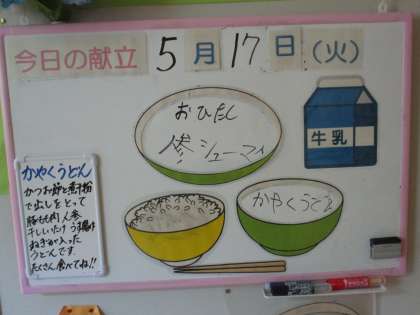 今日の献立 5月17日(火)
おひたし
シューマイ
牛乳
かやくうどん
かやくうどん
かつお節と煮干粉
で出しをとって
豚もも肉 人参
干ししいたけ うす揚げ
ねぎが入った
うどんです。
たくさん食べてね!!